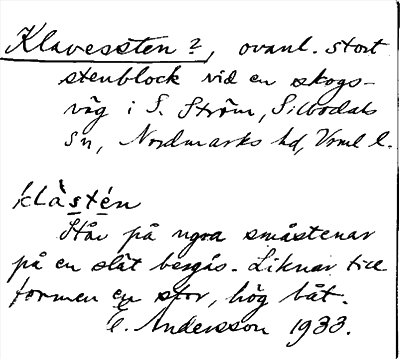 Klavessten?, ovanl. stort
stenblock vid en skogs-
väg i S. Ström, Silbodals
sn, Nordmarks hd, Vrml l.
klàstén
Står på ngra småstenar
på en slät bergås. Liknar till
formen en stor, hög båt.
E. Andersson 1933.